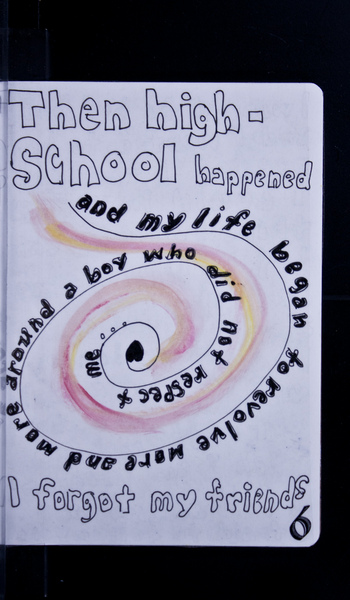 Then high-
School happened
and my life began to revolve more and more around a boy who did not respect me...
I forgot my friends
6